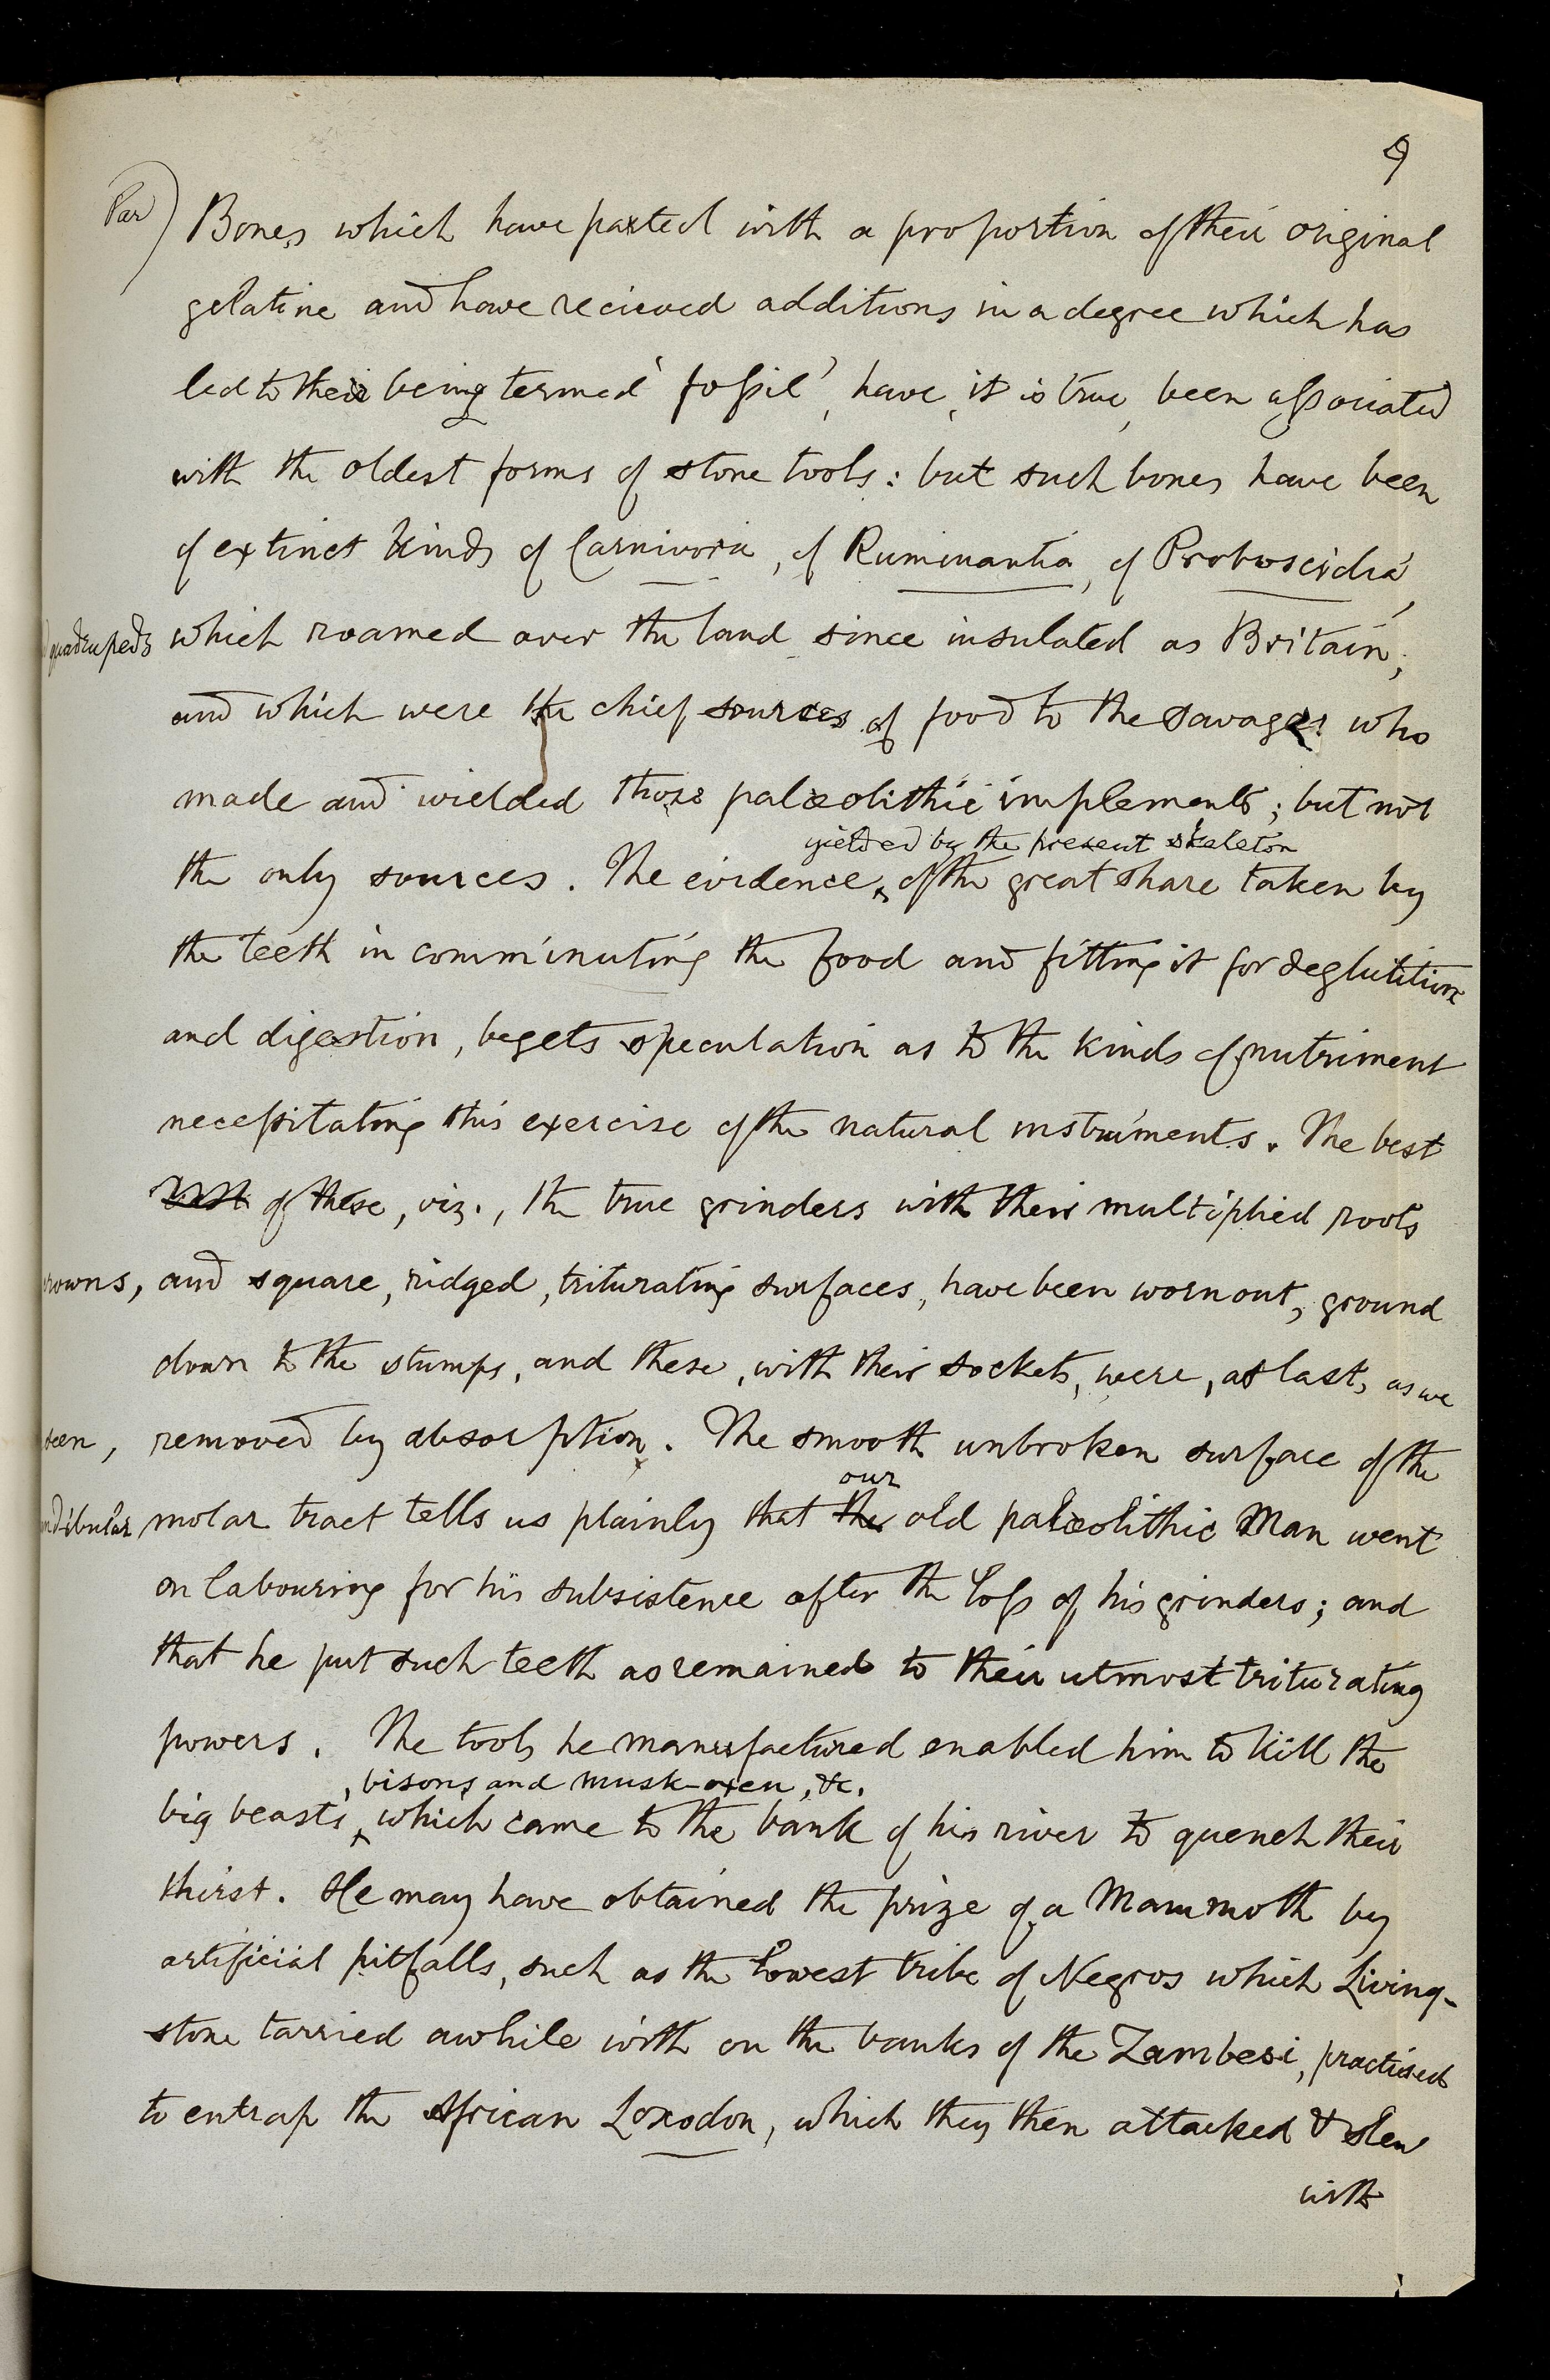 9
Par) Bones which have parted with a proportion of their original
gelatine and have recieved additions in a degree which has
led to their being termed 'fossil', have, it is true, been associated
with the oldest forms of stone tools: but such bones have been
of extinct kinds of Carnivora, of Ruminantia, of Proboscidia,
quadrupeds which roamed over the land since insulated as Britain;
and which were the chief sources of food to the savages who
made and wielded those palæolithic implements; but not
yielded by the present skeleton
the only sources. The evidence of the great share taken by
the teeth in comminuting the food and fitting it for deglutition
and digestion, begets speculation as to the kinds of nutriment
necessitating this exercise of the natural instruments. The best
of these, viz., the true grinders with their multiplied roots
rowns, and square, ridged, triturating surfaces, have been worn out, ground
down to the stumps, and these, with their sockets, were, at last, as we
een, removed by absorption. The smooth unbroken surface of the
our
ndibular molar tract tells us plainly that the old palæolithic Man went
on labouring for his subsistence after the loss of his grinders; and
that he put such teeth as remained to their utmost triturating
powers. The tools he manufactured enabled him to kill the
, bisons and musk-oxen, &c.
big beasts which came to the bank of his river to quench their
thirst. He may have obtained the prize of a Mammoth by
artificial pitfalls, such as the lowest tribe of Negros which Living-
stone tarried awhile with on the banks of the Zambesi, practised
to entrap the African Loxodon, which they then attacked & slew
with